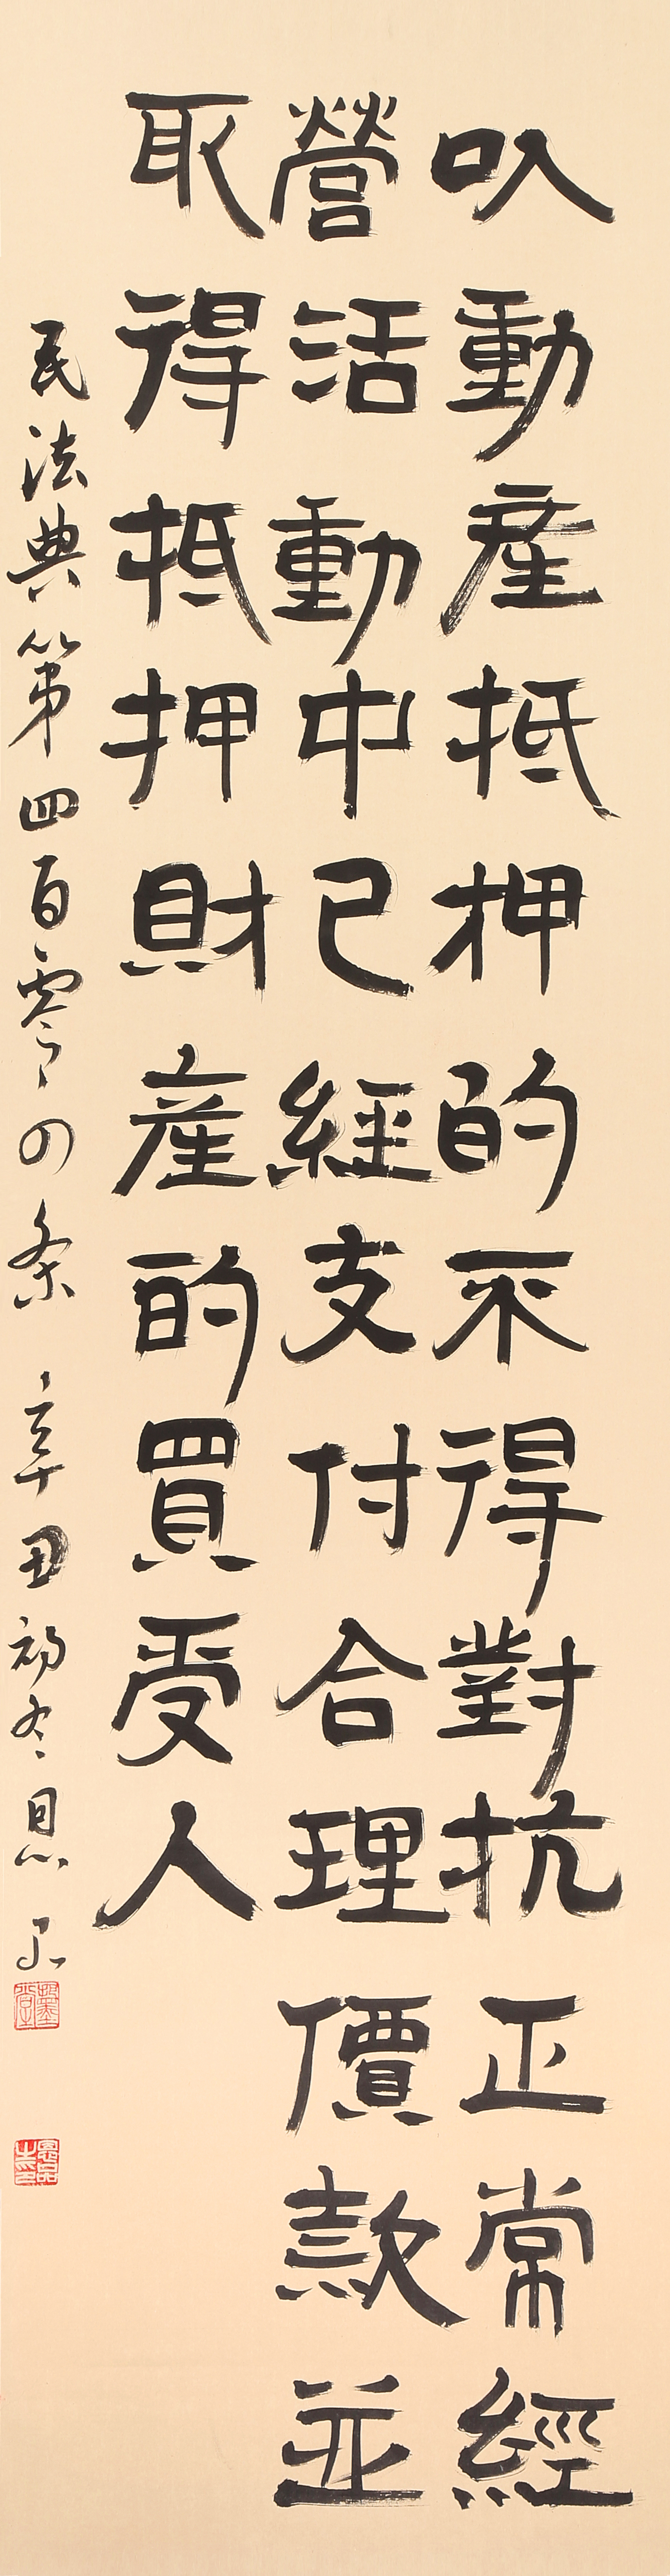 以動產抵押的不得對抗正常經
營活動中已經支付合理價款並
取得抵押財產的買受人
民法典第四百零四条 辛丑初冬思